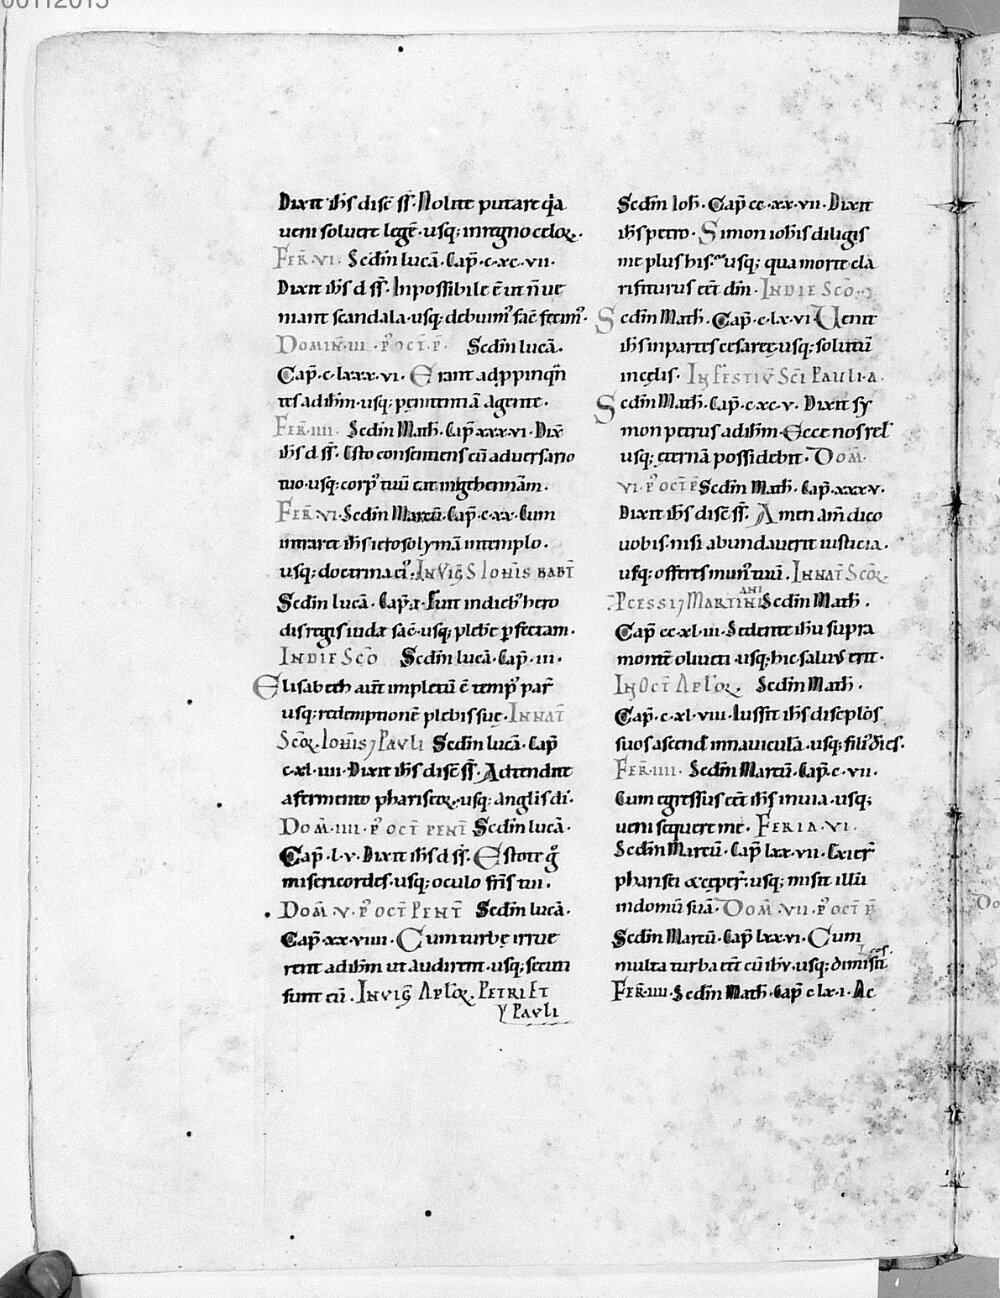 Dixit ih̄s disc̄ sſ. Nolite putare q̇a
ueni soluere legē ·usq; in regno celoꝝ.
FER̄·VI· Sec̄dm lucā·Cap̄·c·xc·vii·
Dixit ih̄s d sſ. Inpossibile ē ut n̄ ue
niant scandala·usq; debuim᷒ fac̄ fecim᷒.
DOMIN̄·III·P᷒ OCT̄·P̄· Sec̄dm lucā.
Cap̄·c·lxxx·vi· Erant adp̄pinqn̄
tes ad ih̄m·usq; penitentiā agente.
FER̄·IIII· Sec̄dm Math̄·Cap̄ xxx·vi·Dix̄
ih̄s d sſ. Esto consentiens cū aduersario
tuo·usq; corp᷒ tuū eat in gehennam.
FER̄·VI·Sec̄dm Marcū·Cap̄·c·xx·Cum
intraret ih̄s ierosolymā in templo.
usq; doctrina ei᷒. IN VIḠ S IOH̄IS BABT̄
Sec̄dm lucā·Cap̄·I·Fuit in dieb᷒ hero
dis regis iudæ sac̄·usq; plebē p̄fectam.
IN DIE SC̄O Sec̄dm lucā·Cap̄·iii·
Elisabeth aut̄ impletū ē temp᷒ par̄
usq; redemptionē plebis suę. IN NAT̄
SC̄OꝜ·IOH̄IS ⁊ PAVLI Sec̄dm lucā·Cap̄
c·xl·iiii·Dixit ih̄s disc̄ sſ. Adtendite
a fermento phariseoꝝ·usq; anglis di·
DOM̄·IIII·P᷒ OCT̄ PENT̄ Sec̄dm lucā·
Cap̄·l·v·Dixit ih̄s d sſ. Estote g̊
misericordes·usq; oculo fr̄is tui·
DOM̄·V·P᷒ OCT̄ PENT̄ Sec̄dm lucā·
Cap̄·xx·viiii· Cum turbę irrue
rent ad ih̄m ut audirent·usq; secuti
sunt eū. IN VIḠ APL̄OꝜ·PETRI ET
PAVLI
Sec̄dm Ioh̄·Cap̄ cc·xx·vii·Dixit
ih̄s petro· Simon ioh̄is diligis
me plus his·usq; qua morte cla
rificaturus eēt dīm· IN DIE SC̄O·
Sec̄dm Math̄·Cap̄·c·lx·vi· Uenit
ih̄s in partes cesareę·usq; solutū
in cęlis· IN FESTIV̄ SC̄I PAULI·A·
Sec̄dm Math̄·Cap̄·c·xc·v· Dixit sy
mon petrus ad ih̄m· Ecce nos rel̄
usq; eternā possidebit· DOM̄·
VI·P᷒ OCT̄ P̄ Sec̄dm Math̄·Cap̄·xxx·v·
Dixit ih̄s disc̄ sſ. Amen am̄ dico
uobis·nisi abundauerit iusticia·
usq; offeres mun᷒ tuū· IN NAT̄ SC̄OꝜ·
PCESSI ⁊ MARTINIANI Sec̄dm Math̄·
Cap̄ cc·xl·iii·Sedente ih̄u supra
montē oliueti·usq; hic saluus erit·
IN OCT̄ APL̄OꝜ· Sec̄dm Math̄·
Cap̄·c·xl·viii·Iussit ih̄s discip̄los
suos ascend̄ in nauiculā·usq; fili᷒ di es·
FER̄·IIII· Sec̄dm Marcū·Cap̄·c·vii·
Cum egressus eēt ih̄s in uia·usq;
ueni sequere me· FERIA·VI·
Sec̄dm Marcū·Cap̄ lxx·vii·Exier̄
pharisei & cęper̄·usq; misit illū
in domū suā· DOM̄·VII·P᷒ OCT̄ P̄
Sec̄dm Marcū·Cap̄ lxx·vi· Cum
multa turba eēt cū ih̄u·usq; dimisit eos·
FER̄·IIII·Sec̄dm Math̄·Cap̄ c lx·i·Ac